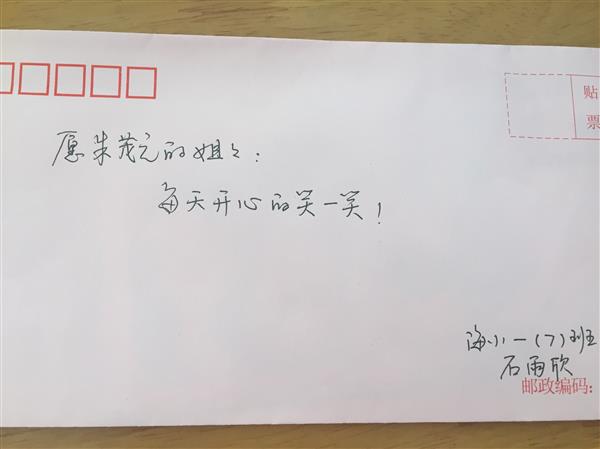 贴
票
愿朱茂元的姐々:
每天开心的笑一笑!
海小一(7)班
石雨欣
邮政编码: